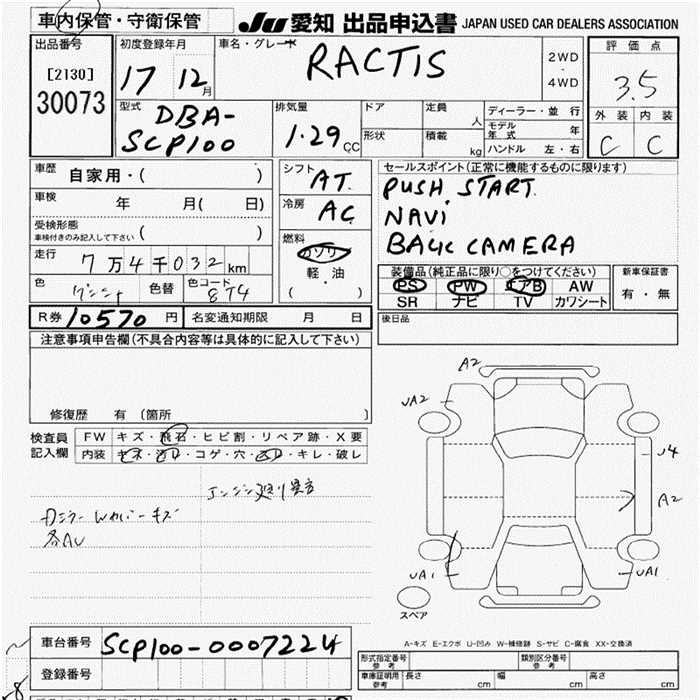 車内保管・守衛保管
JU 愛知 出品申込書 JAPAN USED CAR DEALERS ASSOCIATION
出品番号 [2130] 30073
初度登録年月 17 12月
車名・グレード RACTIS
2WD・4WD
評価点 3.5
外装 C 内装 C
型式 DBA-SCP100
排気量 1.29CC
ドア 形状
定員 人
積載 kg
ディーラー・並行
モデル年式 年
ハンドル 左・右
車歴 自家用・( )
車検 年 月( 日)
受検形態 車検付きのみ記入して下さい ( )
走行 7万4千032km
色 色替 色コード 8T4
シフト AT.
冷房 AC
燃料 ガソリン 軽油 ( )
セールスポイント(正常に機能するものに限ります)
PUSH START.
NAVi
BACK CAMERA
装備品(純正品に限り○をつけてください)
PS PW エアB AW
SR ナビ TV カワシート
新車保証書 有・無
R券 10570 円 名変通知期限 月 日
後日品
注意事項申告欄(不具合内容等は具体的に記入して下さい)
修復歴 有 〔箇所 〕
検査員記入欄
FW キズ・飛石・ヒビ割・リペア跡・X要
内装 キズ・汚れ・コゲ・穴・キレ・破レ
キズ
各AU
A2
UA2
U4
A2
UA1
UA1
スペア
A-キズ E-エクボ U-凹み W-補修跡 S-サビ C-腐食 XX-交換済
車台番号 SCP100-0007224
登録番号
形式指定番号 参考
類別区分番号 参考
車庫証明用 参考 長さ cm 幅 cm 高さ cm